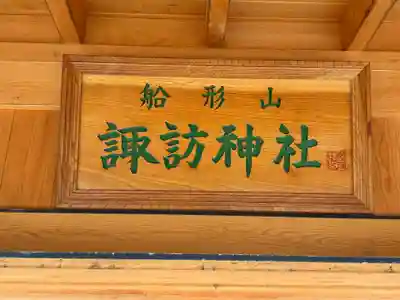 船形山
諏訪神社